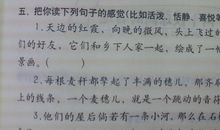 五、把你读下列句子的感觉(比如活泼、恬静、喜悦等
1.天边的红霞，向晚的微风，头上飞过的
们的好友。它们和乡下人家一起，绘成了一幅
景画。(　　)
2.每根麦秆都擎起了丰满的穗儿，那齐
上的线条，一个麦穗儿，就是一个跳动的音
3.他们的屋后倘若有一条小河，那么在石